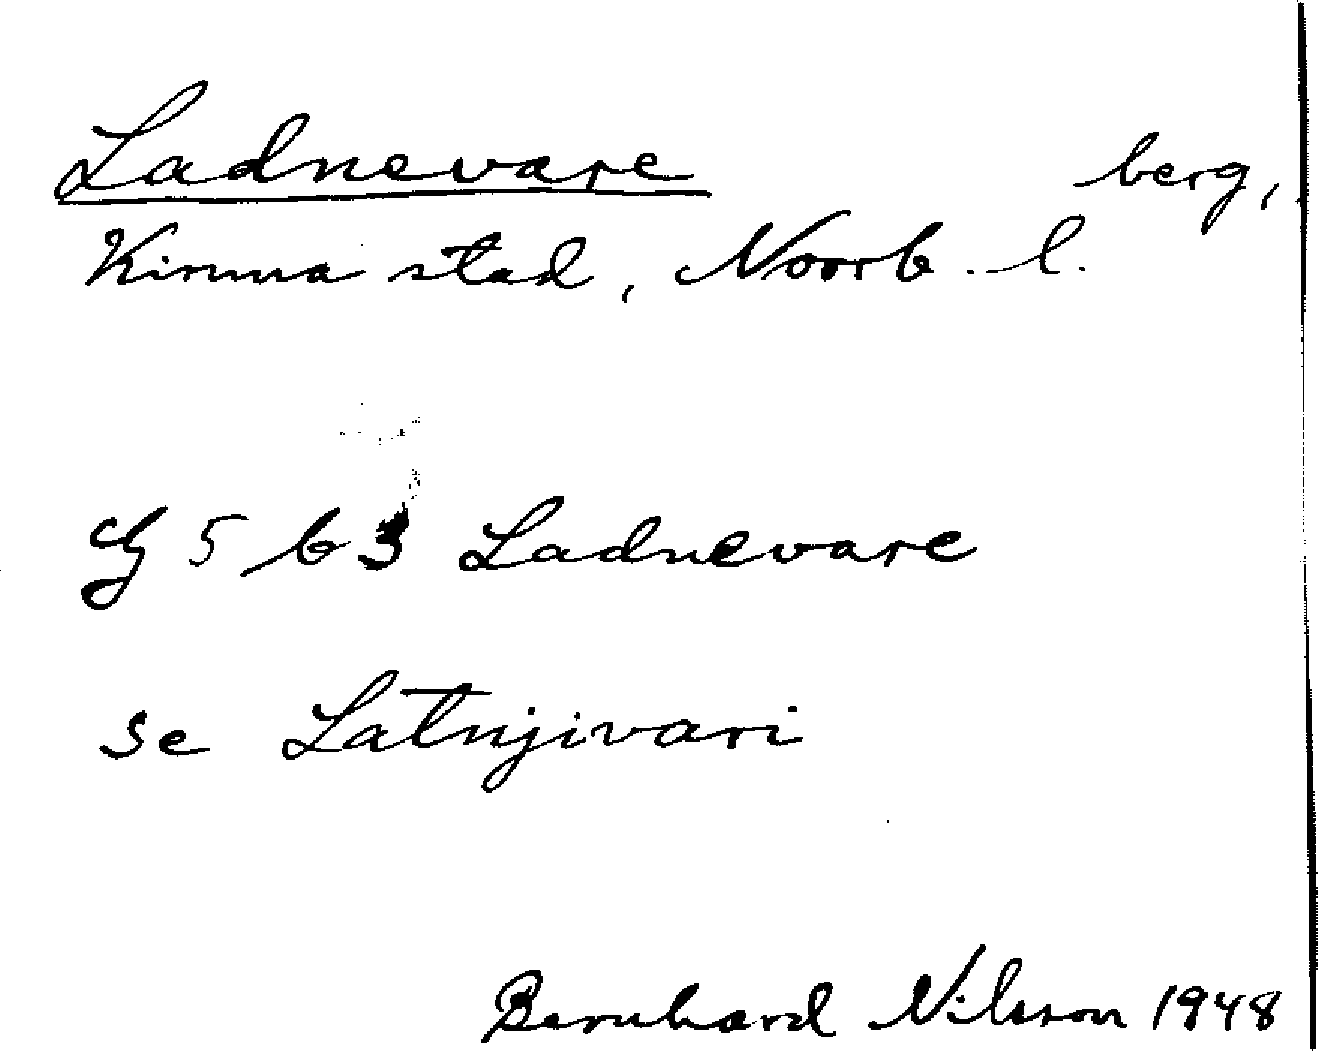 Ladnevare berg,
Kiruna stad, Norrb. l.
Ef 5 b 3 Ladnevare
se Latnjivari
Bernhard Nilsson 1948